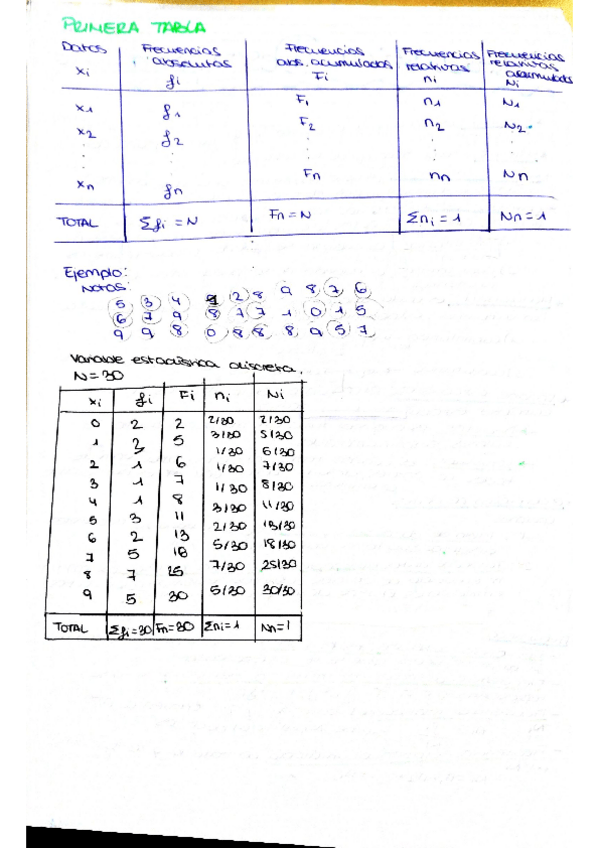 PRIMERA TABLA
Datos Frecuencias Frecuencias Frecuencias Frecuencias
absolutas abs. acumulados relativas relativas
xi fi Fi ni acumulados
Ni
x1 f1 F1 n1 N1
x2 f2 F2 n2 N2
xn fn Fn nn Nn
TOTAL Σfi = N Fn = N Σni = 1 Nn = 1
Ejemplo:
Notas:
5 3 4 9 2 8 9 8 7 6
6 7 9 8 7 7 1 0 1 5
9 9 8 0 8 8 8 9 5 7
Variable estadística discreta.
N = 30
xi fi Fi ni Ni
0 2 2 2/30 2/30
1 3 5 3/30 5/30
2 1 6 1/30 6/30
3 1 7 1/30 7/30
4 1 8 1/30 8/30
5 3 11 3/30 11/30
6 2 13 2/30 13/30
7 5 18 5/30 18/30
8 7 25 7/30 25/30
9 5 30 5/30 30/30
TOTAL Σfi=30 Fn=30 Σni=1 Nn=1